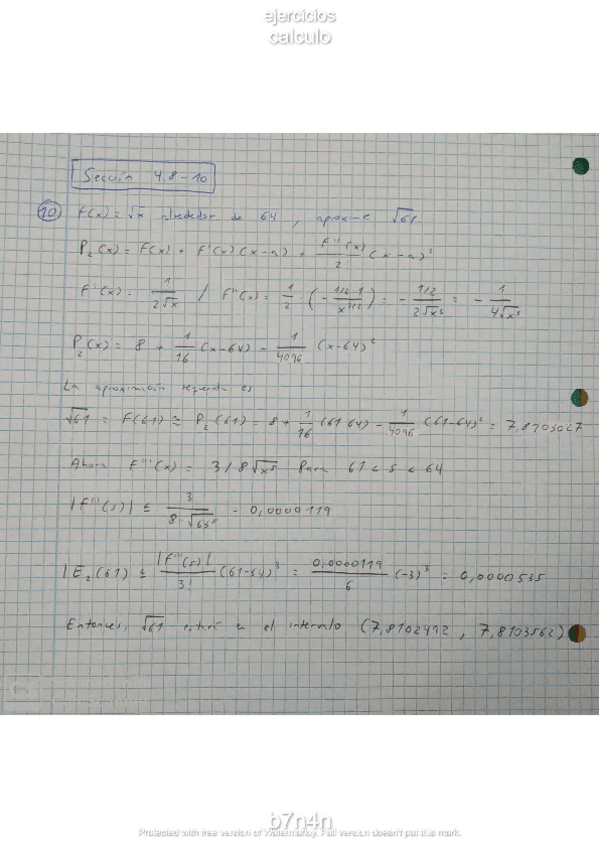 ejercicios
calculo
Sección 4.8-10
10 F(x) = √x alrededor de 64, aproxime √61.
P₂(x) = F(x) + F'(x)(x-a) + F''(x)/2! (x-a)²
F'(x) = 1/(2√x) / F''(x) = 1/2 · (- 1/2·1/x^(3/2)) = - (1/2)/(2√x³) = - 1/(4√x³)
P₂(x) = 8 + 1/16 (x-64) - 1/4096 (x-64)²
La aproximación requerida es
√61 = F(61) ≅ P₂(61) = 8 + 1/16 (61-64) - 1/4096 (61-64)² = 7,8103027
Ahora F'''(x) = 3/8√x⁵ Para 61 < s < 64
|F'''(s)| ≤ 3/(8·√61⁵) = 0,0000119
|E₂(61) ≤ |F'''(s)|/3! (61-64)³ = 0,0000119/6 (-3)³ = 0,0000535
Entonces, √61 estará en el intervalo (7,8102492, 7,8103562)
b7n4n
Protected with free version of Watermarkly. Full version doesn't put this mark.